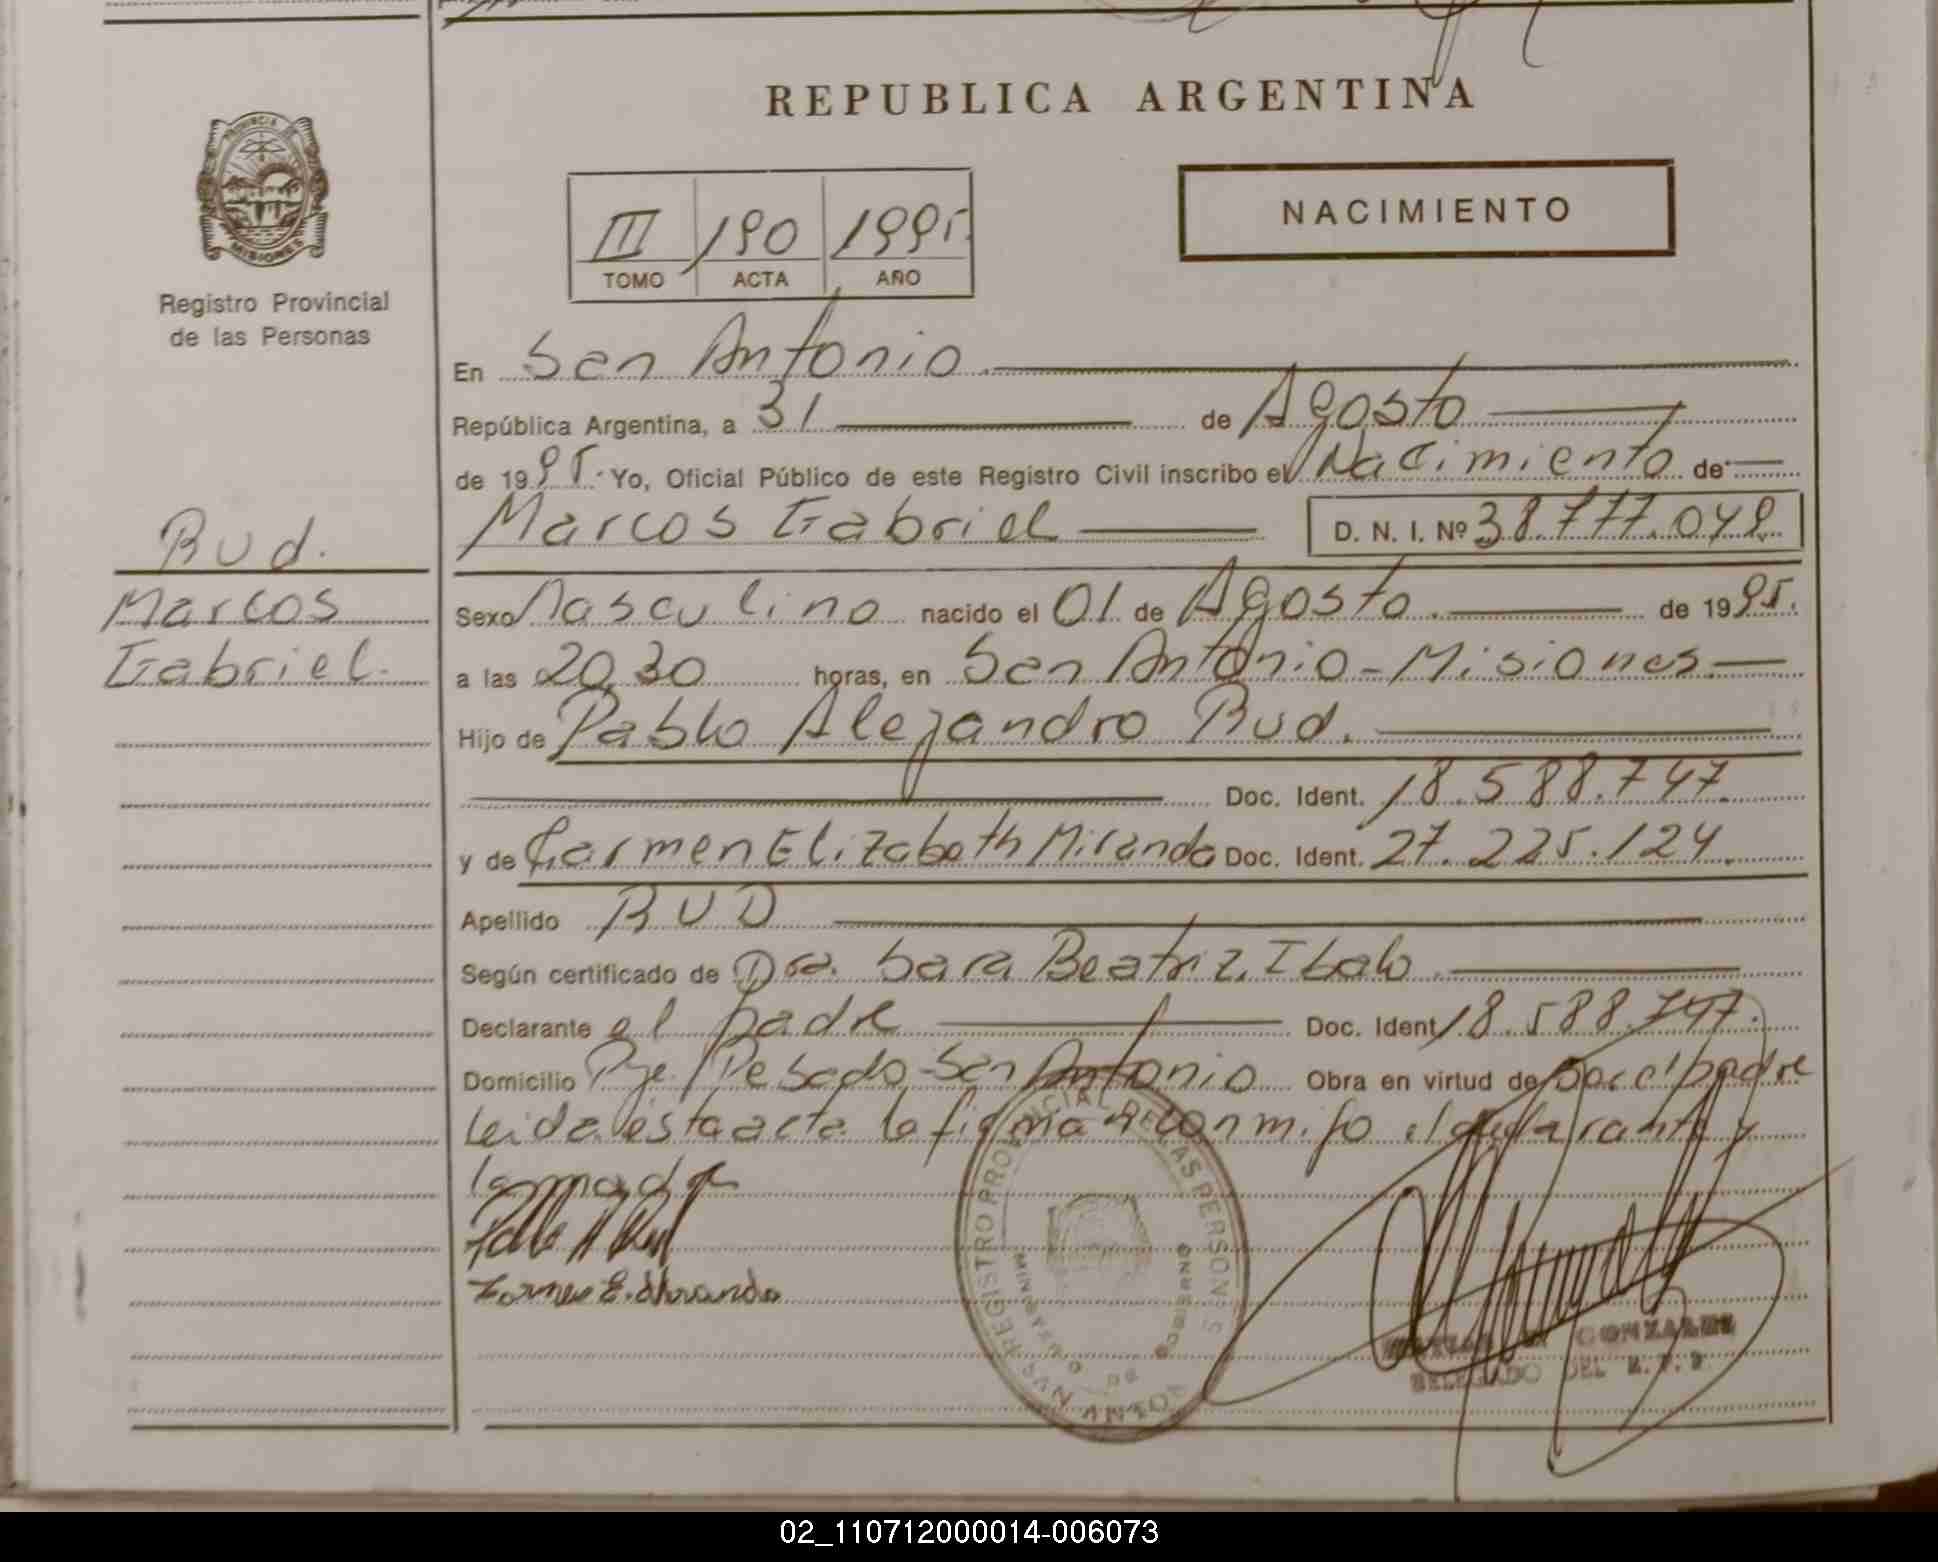 REPUBLICA ARGENTINA
PROVINCIA DE
MISIONES
Registro Provincial
de las Personas
NACIMIENTO
III 190 1995.
TOMO ACTA AÑO
En San Antonio.
República Argentina, a 31 de Agosto
de 1995. Yo, Oficial Público de este Registro Civil inscribo el Nacimiento de
Marcos Gabriel D. N. I. Nº 38.777.048.
Bud.
Marcos
Gabriel.
Sexo Masculino nacido el 01 de Agosto. de 1995.
a las 20,30 horas, en San Antonio - Misiones.
Hijo de Pablo Alejandro Bud.
Doc. Ident. 18.588.747.
y de Carmen Elizabeth Miranda Doc. Ident. 27.225.124.
Apellido BUD
Según certificado de Dra. Sara Beatriz
Declarante el padre Doc. Ident. 18.588.747.
Domicilio Pje Pesado - San Antonio Obra en virtud de ser el padre
leida esta acta la firman conmigo el declarante y
la madre
Pablo A Bud
Carmen E. Miranda
REGISTRO PROVINCIAL DE LAS PERSONAS
MINISTERIO DE GOBIERNO
SAN ANTONIO
GONZALEZ
DELEGADO DEL R. P. P.
02_110712000014-006073